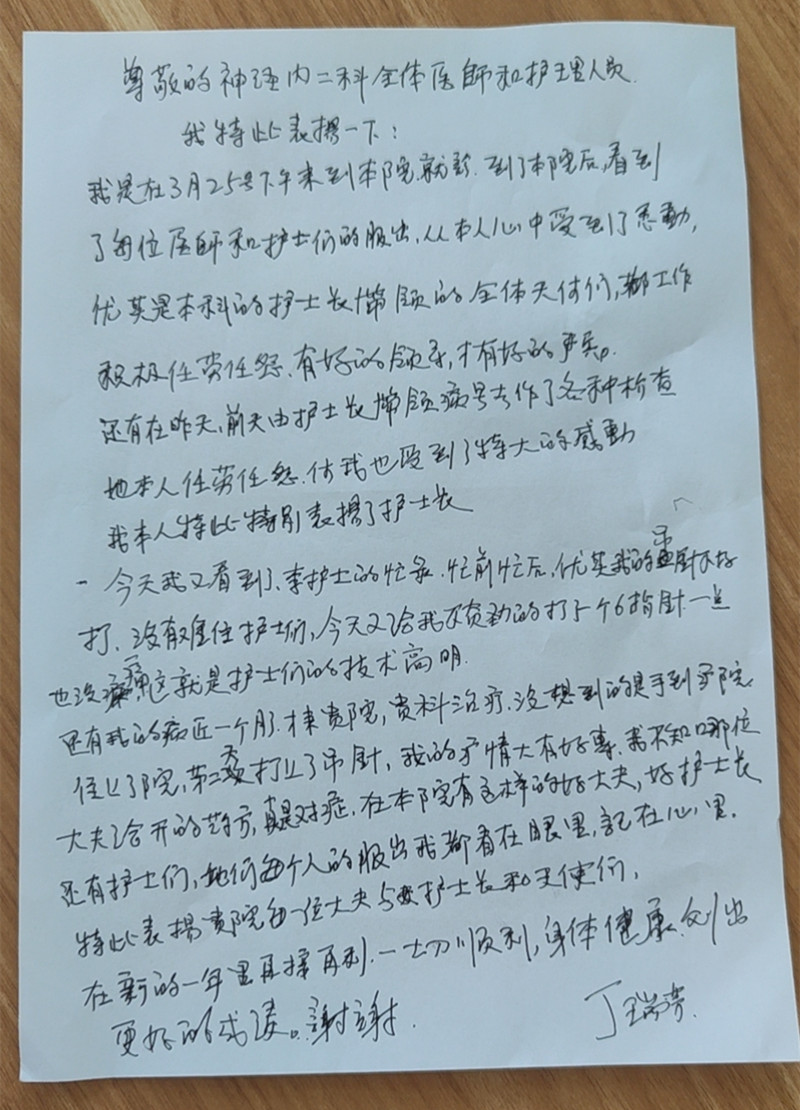 尊敬的神经内二科全体医師和护理人员.
我特此表揚一下:
我是在3月25号下午来到本院就診.到了本院后,看到
了每位医師和护士们的服出,从本人心中受到了感動,
优其是本科的护士长帶領的全体天使们,都工作
积极任劳任怨.有好的領导,才有好的
还有在昨天,前天由护士长帶領病号去作了各种检查
她本人任劳任怨.使我也受到了特大的感動
我本人特此特别表揚了护士长
-今天我又看到了.李护士的忙录.忙前忙后,优其我的吊針不好
打.没有难住护士们,今天又给我不負劲的打了个6指針一点
也没痛这就是护士们的技术高明.
还有我的病近一个月.才来贵院,贵科治疗.没想到的是手到
住上了院,第二天打上了吊針,我的病情大有好轉.我不知口哪位
大夫给开的药方,真是对症.在本院有这样的好大夫,好护士长
还有护士们,她们每个人的服出我都看在眼里,記在心里.
特此表揚贵院每一位大夫与护士长和天使们,
在新的一年里再接再利.一切順利,身体健康.创出
更好的成绩。謝謝. 丁瑞芳.